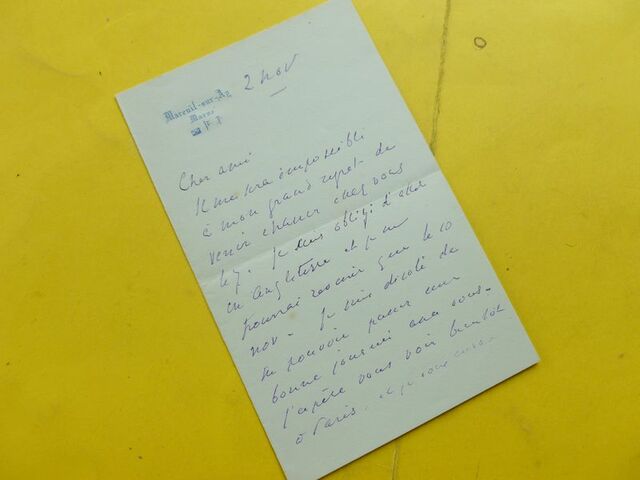 Mareuil-sur-Ay
Marne
2 nov
Cher ami
Il me sera impossible
à mon grand regret de
venir chasser chez vous
le 7. Je suis obligé d'aller
en Angleterre et je ne
pourrai revenir que le 10
nov. Je suis désolé de
ne pouvoir passer cette
bonne journée avec vous.
J'espère vous voir bientôt
à Paris. et je vous